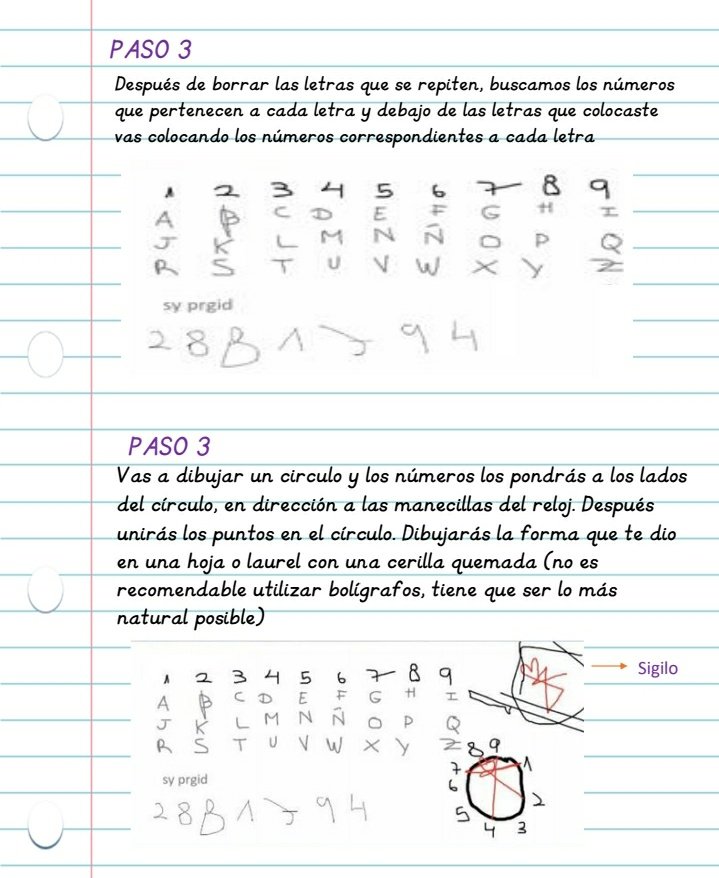 PASO 3
Después de borrar las letras que se repiten, buscamos los números
que pertenecen a cada letra y debajo de las letras que colocaste
vas colocando los números correspondientes a cada letra
1 2 3 4 5 6 7 8 9
A B C D E F G H I
J K L M N Ñ O P Q
R S T U V W X Y Z
sy prgid
2 8 8 1 7 9 4
PASO 3
Vas a dibujar un circulo y los números los pondrás a los lados
del círculo, en dirección a las manecillas del reloj. Después
unirás los puntos en el círculo. Dibujarás la forma que te dio
en una hoja o laurel con una cerilla quemada (no es
recomendable utilizar bolígrafos, tiene que ser lo más
natural posible)
1 2 3 4 5 6 7 8 9
Sigilo
A B C D E F G H I
J K L M N Ñ O P Q
R S T U V W X Y Z
8 9
7 1
6
2
5
4 3
sy prgid
2 8 8 1 7 9 4